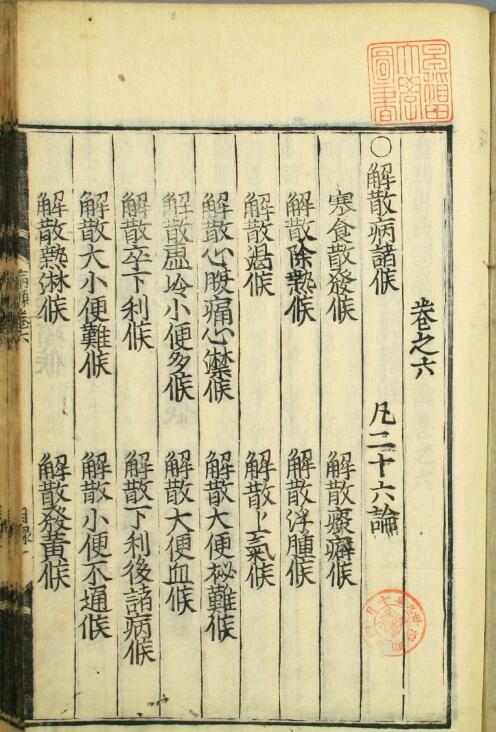 卷之六
○解散病諸候 凡二十六論
寒食散發候 解散癥癖候
解散除熱候 解散浮腫候
解散渴候 解散上氣候
解散心腹痛心懔候 解散大便秘難候
解散虛冷小便多候 解散大便血候
解散卒下利候 解散下利後諸病候
解散大小便難候 解散小便不通候
解散熱淋候 解散發黃候
目錄一